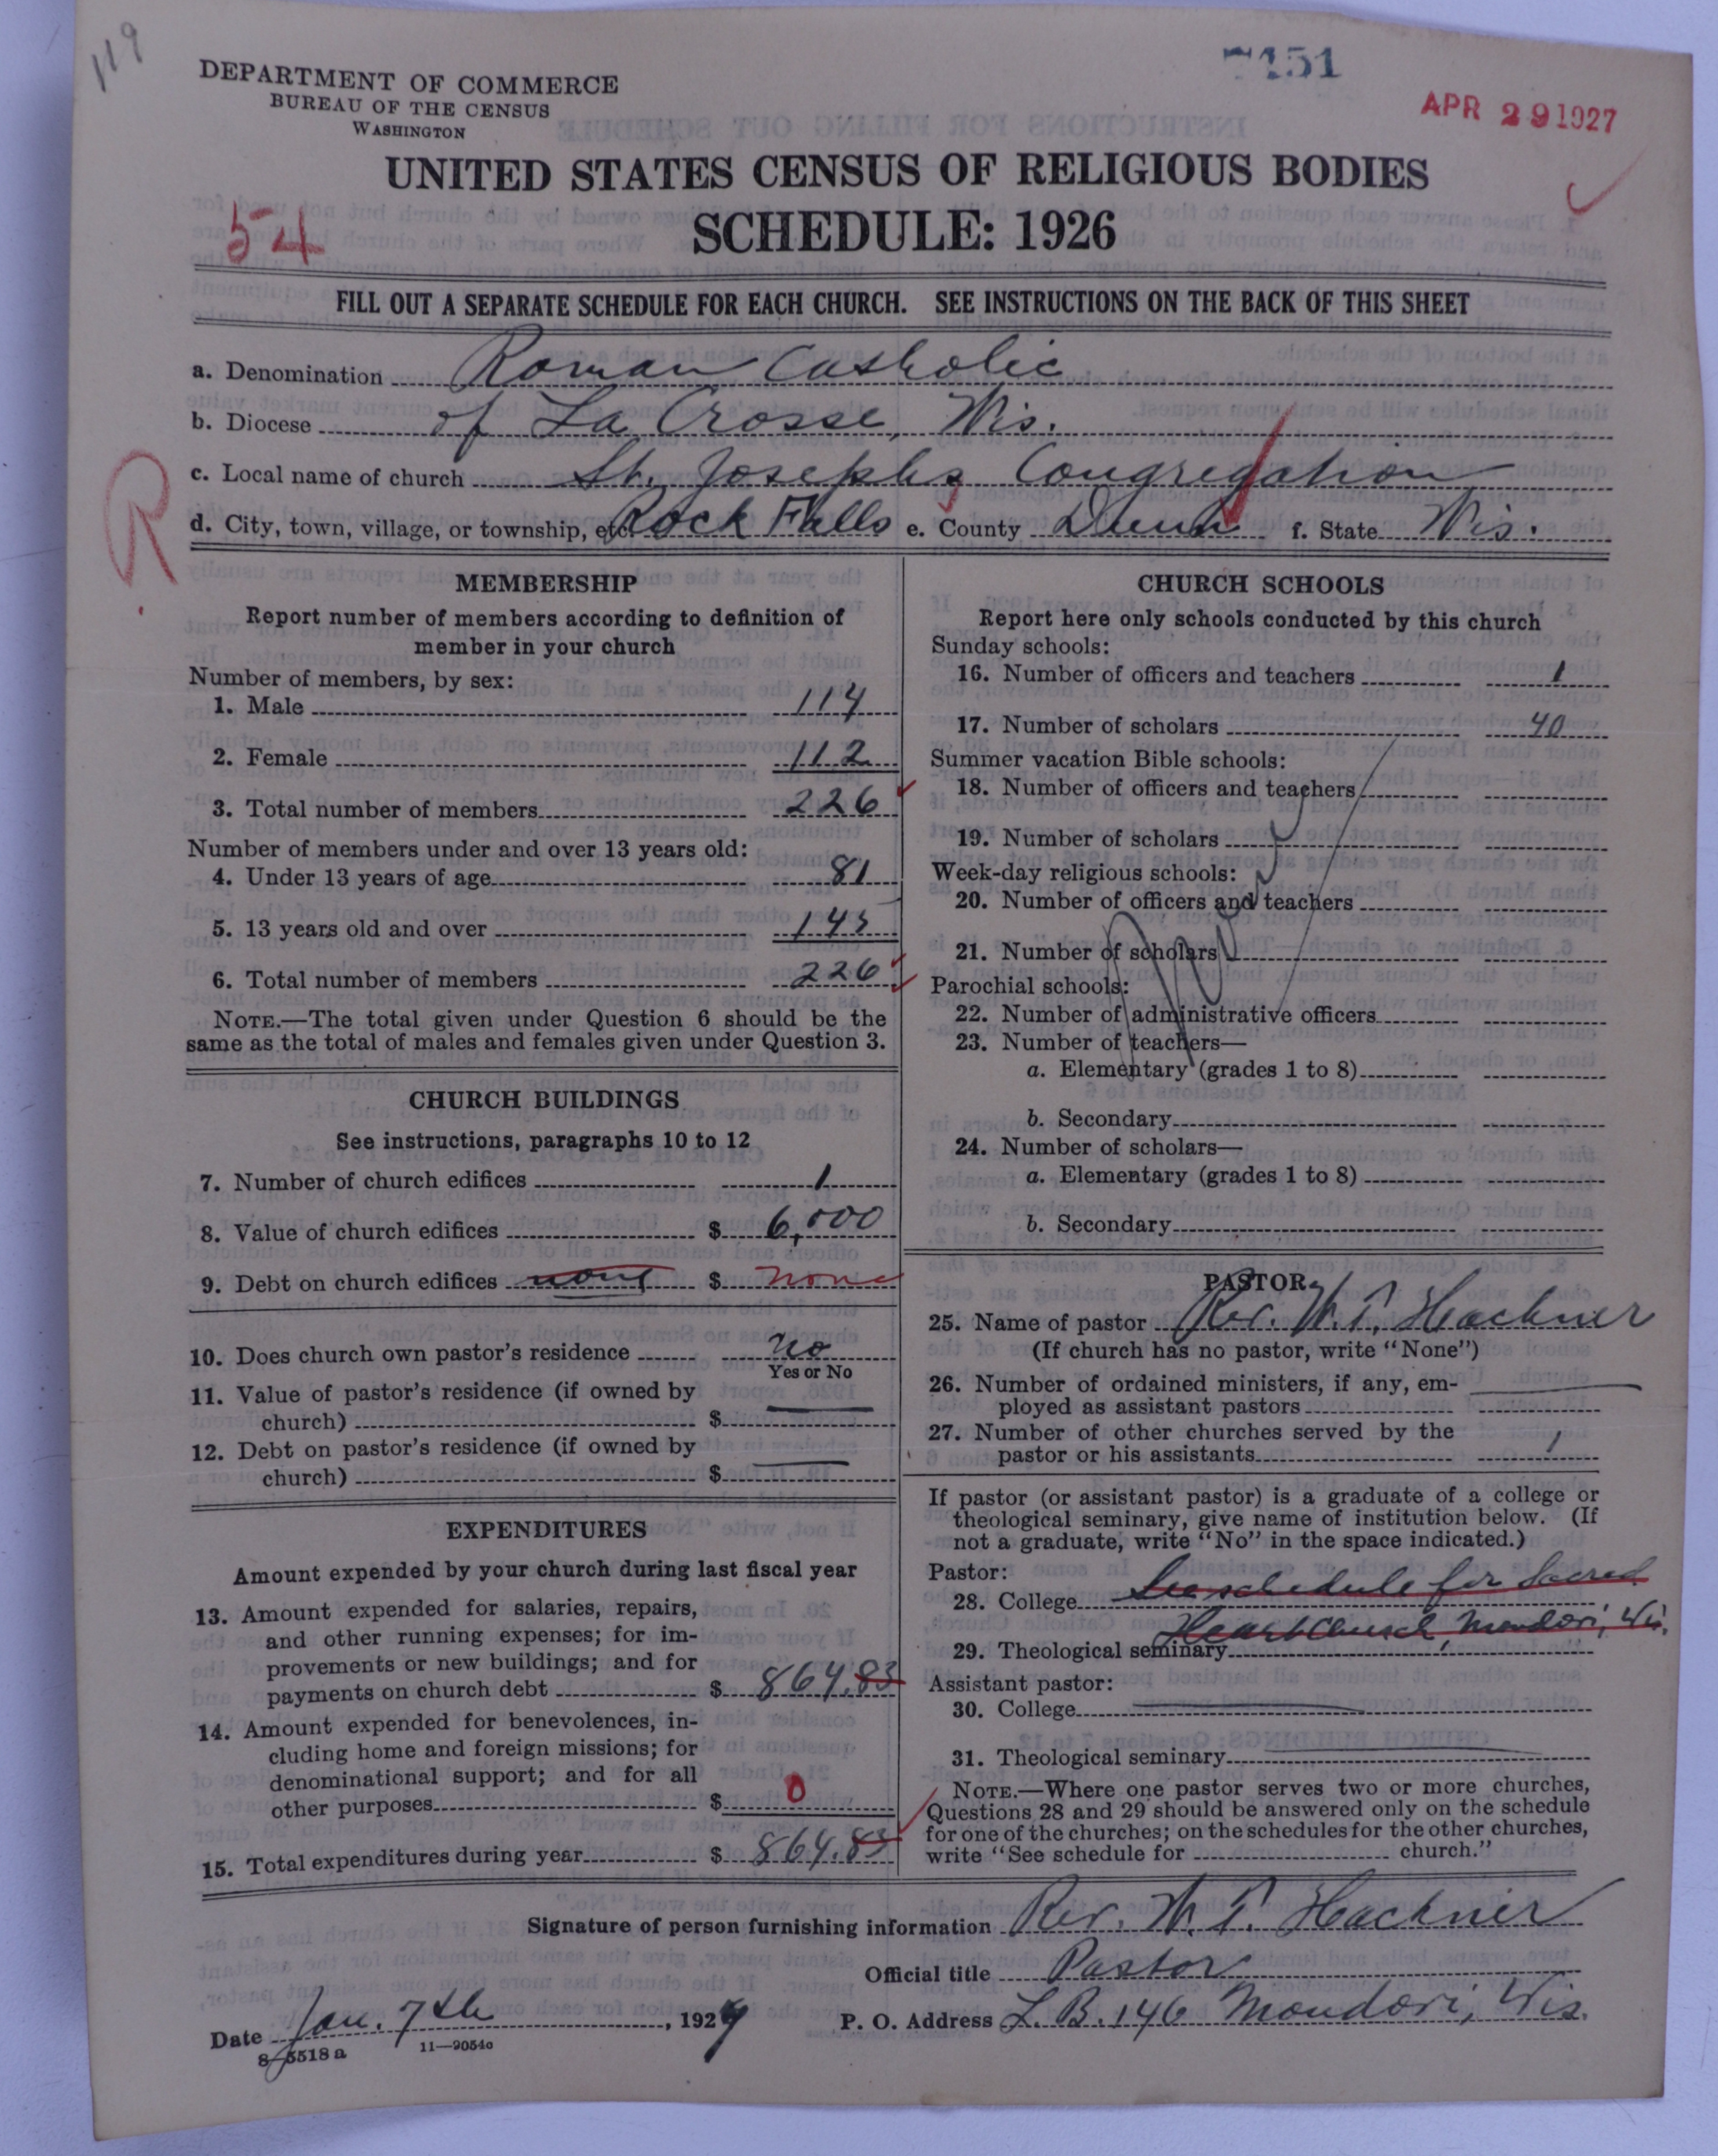 119
7151
DEPARTMENT OF COMMERCE
BUREAU OF THE CENSUS
WASHINGTON
APR 29 1927
UNITED STATES CENSUS OF RELIGIOUS BODIES
54
SCHEDULE: 1926
FILL OUT A SEPARATE SCHEDULE FOR EACH CHURCH. SEE INSTRUCTIONS ON THE BACK OF THIS SHEET
a. Denomination Roman Catholic
b. Diocese of La Crosse, Wis.
c. Local name of church St. Josephs Congregation
R
d. City, town, village, or township, etc. Rock Falls e. County Dunn f. State Wis.
MEMBERSHIP
Report number of members according to definition of
member in your church
Number of members, by sex:
1. Male 114
2. Female 112
3. Total number of members 226
Number of members under and over 13 years old:
4. Under 13 years of age 81
5. 13 years old and over 145
6. Total number of members 226
NOTE.—The total given under Question 6 should be the
same as the total of males and females given under Question 3.
CHURCH BUILDINGS
See instructions, paragraphs 10 to 12
7. Number of church edifices 1
8. Value of church edifices $ 6,000
9. Debt on church edifices none $ none
10. Does church own pastor's residence no
Yes or No
11. Value of pastor's residence (if owned by
church) $
12. Debt on pastor's residence (if owned by
church) $
EXPENDITURES
Amount expended by your church during last fiscal year
13. Amount expended for salaries, repairs,
and other running expenses; for im-
provements or new buildings; and for
payments on church debt $ 864.83
14. Amount expended for benevolences, in-
cluding home and foreign missions; for
denominational support; and for all
other purposes $ 0
15. Total expenditures during year $ 864.83
CHURCH SCHOOLS
Report here only schools conducted by this church
Sunday schools:
16. Number of officers and teachers 1
17. Number of scholars 40
Summer vacation Bible schools:
18. Number of officers and teachers
19. Number of scholars
Week-day religious schools:
20. Number of officers and teachers
21. Number of scholars
Parochial schools:
22. Number of administrative officers
23. Number of teachers—
a. Elementary (grades 1 to 8)
b. Secondary
24. Number of scholars—
a. Elementary (grades 1 to 8)
b. Secondary
PASTOR
25. Name of pastor Rev. W. T. Hackner
(If church has no pastor, write "None")
26. Number of ordained ministers, if any, em-
ployed as assistant pastors
27. Number of other churches served by the
pastor or his assistants 1
If pastor (or assistant pastor) is a graduate of a college or
theological seminary, give name of institution below. (If
not a graduate, write "No" in the space indicated.)
Pastor:
28. College See schedule for Sacred
Heart Church, Mondovi, Wis.
29. Theological seminary
Assistant pastor:
30. College
31. Theological seminary
NOTE.—Where one pastor serves two or more churches,
Questions 28 and 29 should be answered only on the schedule
for one of the churches; on the schedules for the other churches,
write "See schedule for church."
Signature of person furnishing information Rev. W. T. Hackner
Official title Pastor
Date Jan. 7th, 1927 P. O. Address L. B. 146 Mondovi, Wis.
8-5518 a 11—9054o